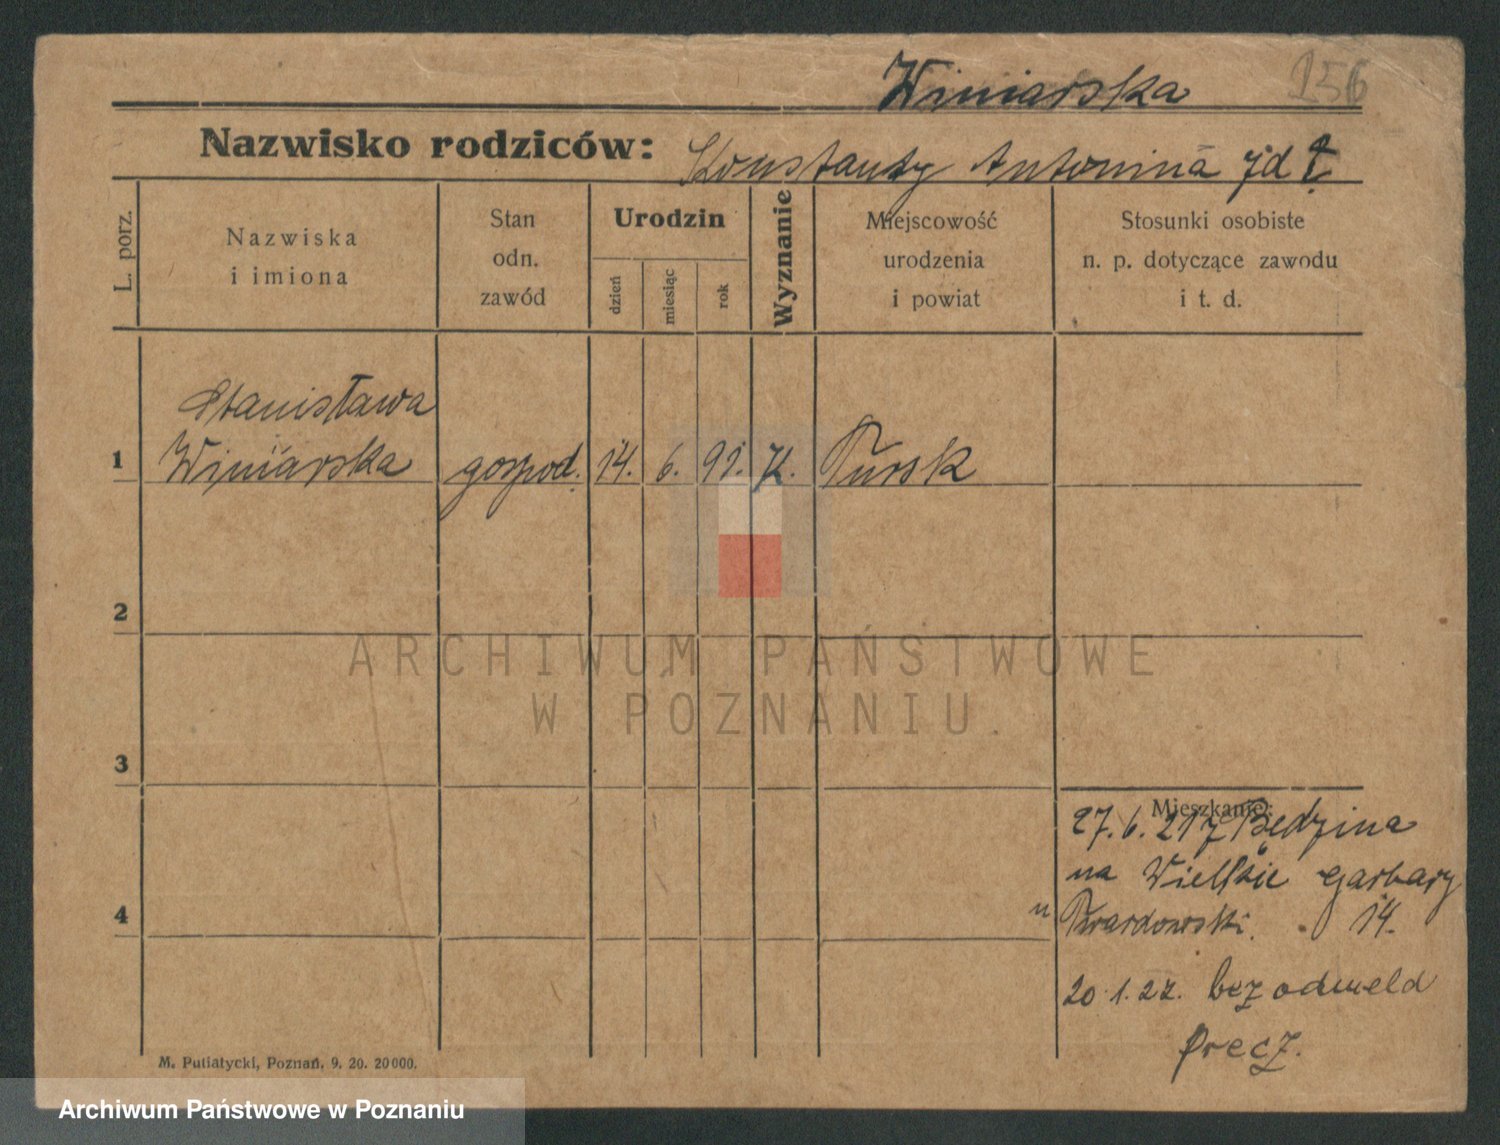 Winiarska 156
Nazwisko rodziców: Konstanty Antonina
L. porz.
Nazwiska
i imiona
Stan
odn.
zawód
Urodzin
dzień
miesiąc
rok
Wyznanie
Miejscowość
urodzenia
i powiat
Stosunki osobiste
n. p. dotyczące zawodu
i t. d.
Stanisława
1 Winiarska gospod. 14. 6. 91. K. Tursk
2
ARCHIWUM PAŃSTWOWE
W POZNANIU.
3
Mieszkanie:
27.6.21 z Będzina
na Wielkie garbary
u Twardowski. 14.
4
20.1.22. bez odmeld
precz.
M. Putiatycki, Poznań, 9. 20. 20000.
Archiwum Państwowe w Poznaniu